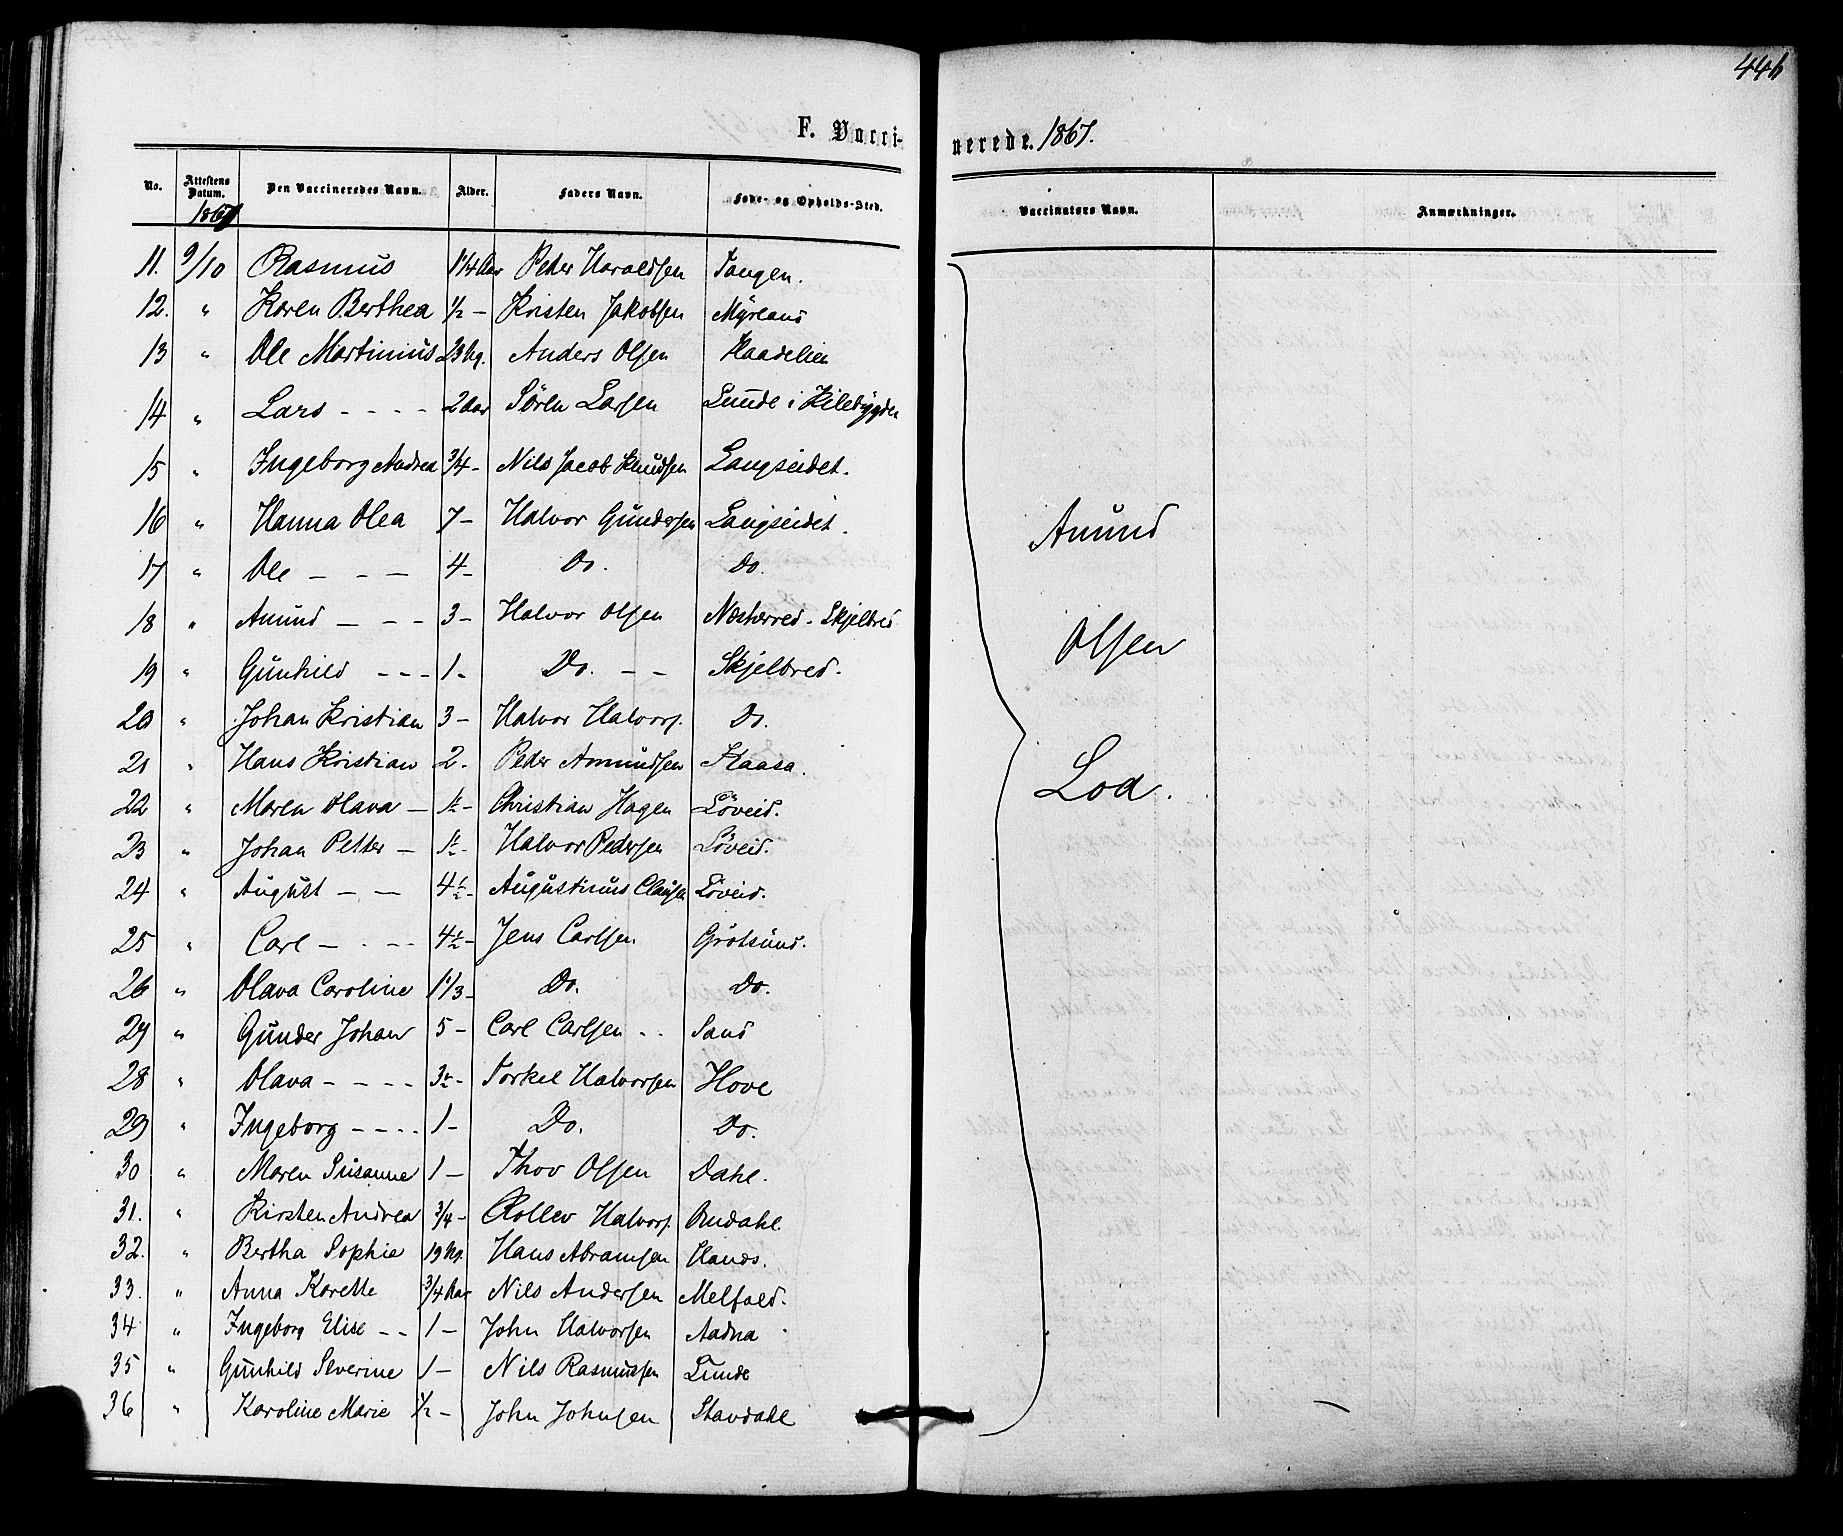 446
F. Vacci-
nerede. 1867.
No. Attestens Datum. Den Vaccineredes Navn. Alder. Faders Navn. Føde- og Opholds-Sted. Vaccinatørs Navn. Anmærkninger.
1867
11. 9/10 Rasmus 1 1/4 Aar Peder Haraldsen Tangen.
12. " Karen Berthea 1/2 - Kristen Jakobsen Myreans
13 " Ole Martinius 23 Ug. Anders Olsen Raadelien
14 " Lars - - - - 2 Aar Sören Larsen Lunde i Kilebygden
15 " Ingeborg Andrea 3/4 - Nils Jacob Knudsen Langseidet.
16 " Hanna Olea 7 - Halvor Gundersen Langseidet.
17 " Ole - - - 4 - Do. Do.
18 " Amund - - - 3 - Halvor Olsen Næsterød - Skjelbred
19 " Gunhild - - - 1 - Do. - - Skjelbred.
20 " Johan Kristian 3 - Halvor Halvors. Do.
21 " Hans Kristian 2. Peder Amundsen Staasa.
22 " Maren Olava - 1 1/2 - Christian Hagen Löveid.
23 " Johan Petter - 1 1/2 - Halvor Pedersen Löveid.
24 " August - - 4 1/2 - Augustinus Clausen Löveid.
25 " Carl - - - - 4 1/2 - Jens Carlsen Grotsund.
26 " Olava Caroline 1 1/3 - Do. Do.
27 " Gunder Johan 5 - Carl Carlsen - - Sand
28 " Olava - - - - 3 1/2 - Torkel Halvorsen Hove
29 " Ingeborg - - - - 1 - Do. Do.
30 " Maren Susanne 1 - Thov Olsen Dahl.
31. " Kirsten Andrea 3/4 - Rollev Halvors. Omdahl.
32. " Bertha Sophie 19 Ug. Hans Abramsen Hands.
33. " Anna Karette 3/4 Aar Nils Andersen Melfald.
34 " Ingeborg Elise - - 1 - John Halvorsen Aadna
35 " Gunhild Severine 1 - Nils Rasmussen Lunde
36 " Karoline Marie 1/2 - John Johnsen Stavdahl
Amund
Olsen
Loa.